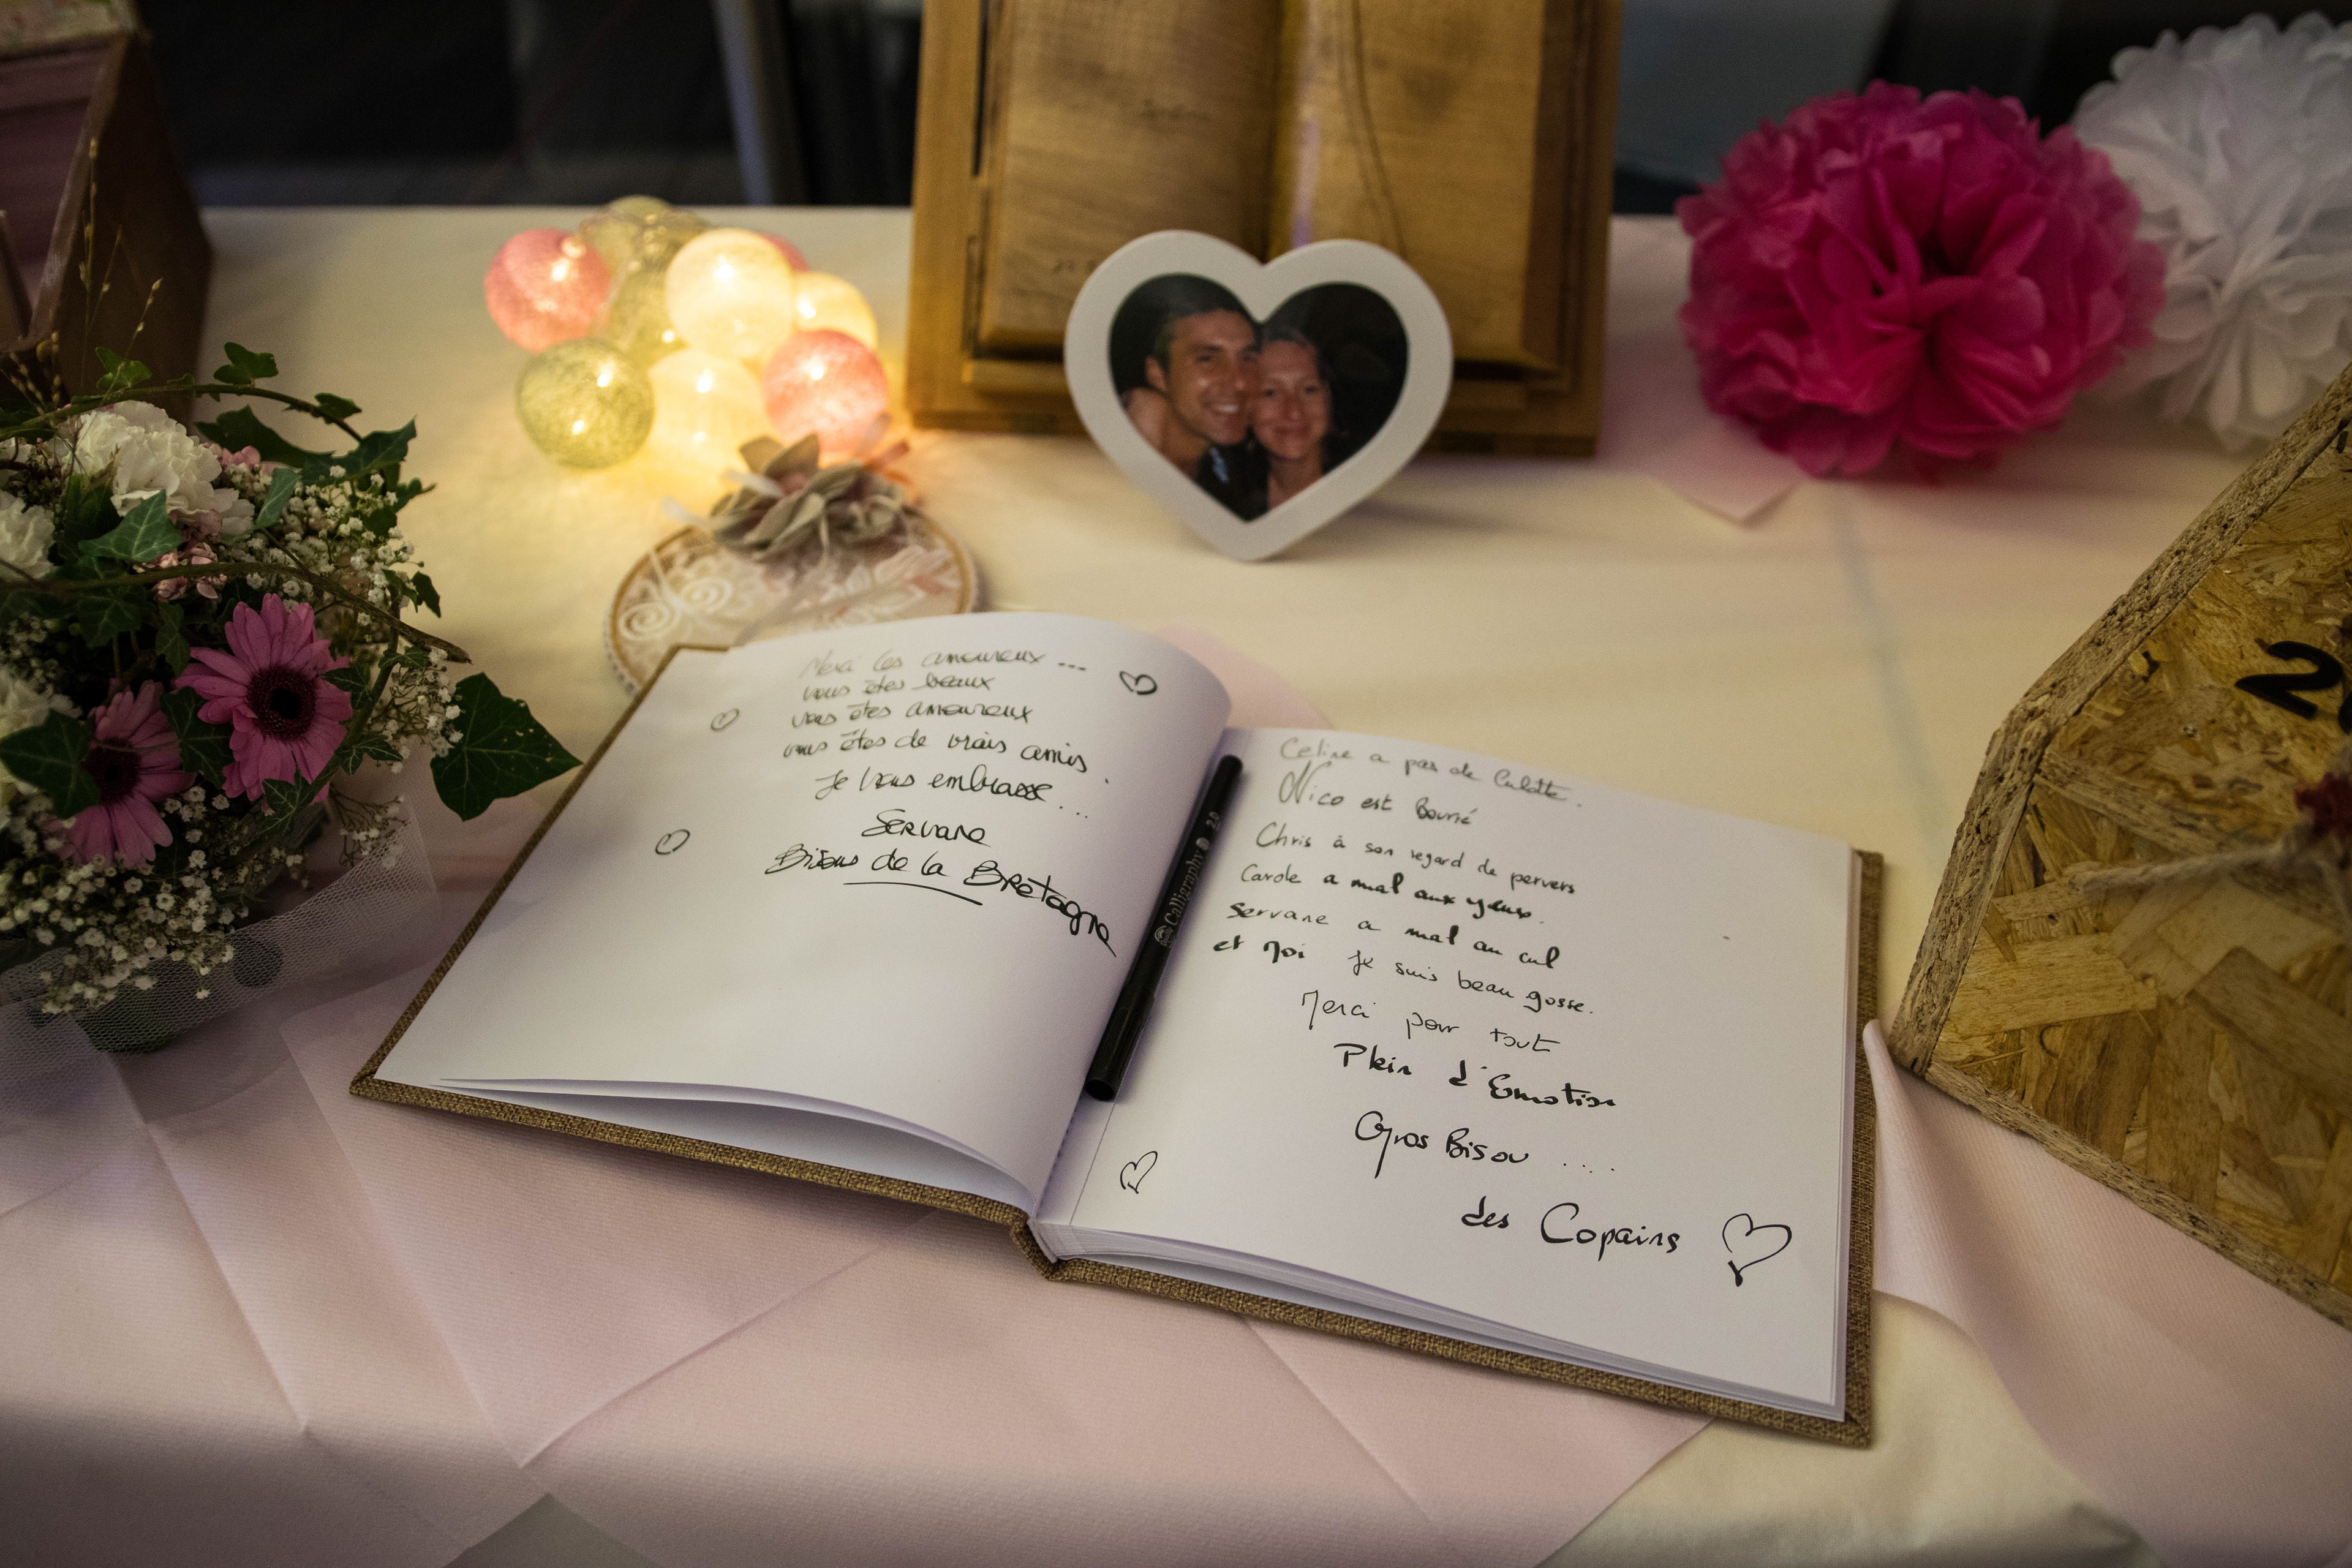 Merci les amoureux ...
vous êtes beaux
vous êtes amoureux
vous êtes de vrais amis.
Je vous embrasse...
Servane
Bisous de la Bretagne
Calligraphy 2.0
Celine a pas de Culotte.
Nico est Bourré
Chris à son regard de pervers
Carole a mal aux yeux.
Servane a mal au cul
et moi Je suis beau gosse.
Merci pour tout
Plein d'Emotion
Gros Bisou ....
des Copains
2